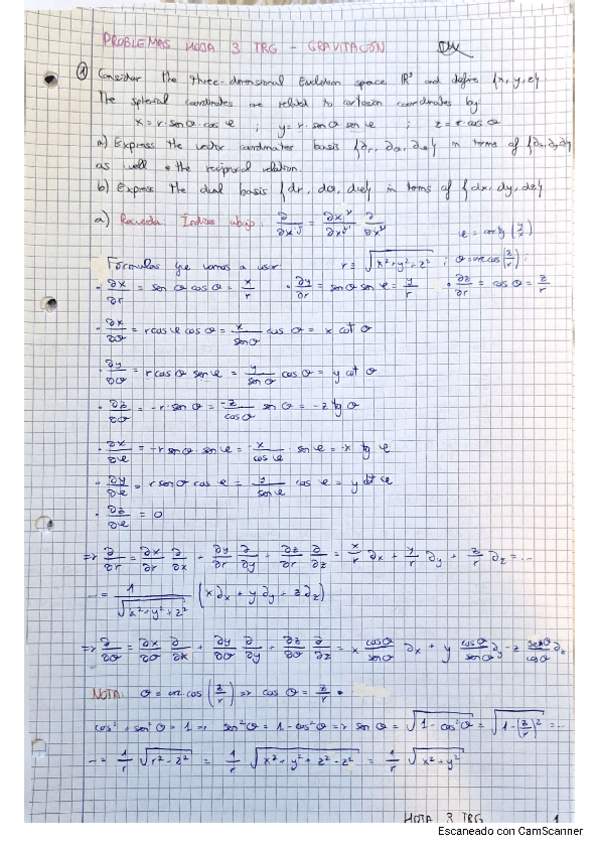 PROBLEMAS HOJA 3 TRG - GRAVITACIÓN
① Consider the three-dimensional Euclidean space ℝ³ and define {x, y, z}
The spherical coordinates are related to cartesian coordinates by:
x = r·senθ·cosφ ; y = r·senθ senφ ; z = r·cosθ
a) Express the vector coordinates basis {∂r, ∂θ, ∂φ} in terms of {∂x, ∂y, ∂z}
as well the reciprocal relation.
b) Express the dual basis {dr, dθ, dφ} in terms of {dx, dy, dz}
a) Recuerda: Índices abajo: ∂/∂x^ν' = ∂x^ν/∂x^ν' ∂/∂x^ν φ = arctg (y/x)
Fórmulas que vamos a usar r = √(x²+y²+z²) ; θ = arccos(z/r) ;
· ∂x/∂r = senθ cosφ = x/r · ∂y/∂r = senθ senφ = y/r · ∂z/∂r = cosθ = z/r
· ∂x/∂θ = r cosφ cosθ = x/senθ cosθ = x cotθ
· ∂y/∂θ = r cosθ senφ = y/senθ cosθ = y cotθ
· ∂z/∂θ = -r senθ = -z/cosθ senθ = -z tgθ
· ∂x/∂φ = -r senθ·senφ = -x/cosφ · senφ = -x tgφ
· ∂y/∂φ = r senθ cosφ = y/senφ cosφ = y cotφ
· ∂z/∂φ = 0
=> ∂/∂r = ∂x/∂r ∂/∂x + ∂y/∂r ∂/∂y + ∂z/∂r ∂/∂z = x/r ∂x + y/r ∂y + z/r ∂z = ...
... = 1/√(x²+y²+z²) (x∂x + y∂y + z∂z)
=> ∂/∂θ = ∂x/∂θ ∂/∂x + ∂y/∂θ ∂/∂y + ∂z/∂θ ∂/∂z = x cosθ/senθ ∂x + y cosθ/senθ ∂y - z senθ/cosθ ∂z
NOTA: θ = arccos(z/r) => cosθ = z/r ·
cos² + sen²θ = 1 => sen²θ = 1-cos²θ => senθ = √(1-cos²θ) = √(1-(z/r)²) = ...
... = 1/r √(r²-z²) = 1/r √(x²+y²+z²-z²) = 1/r √(x²+y²)
HOJA 3 TRG 1
Escaneado con CamScanner